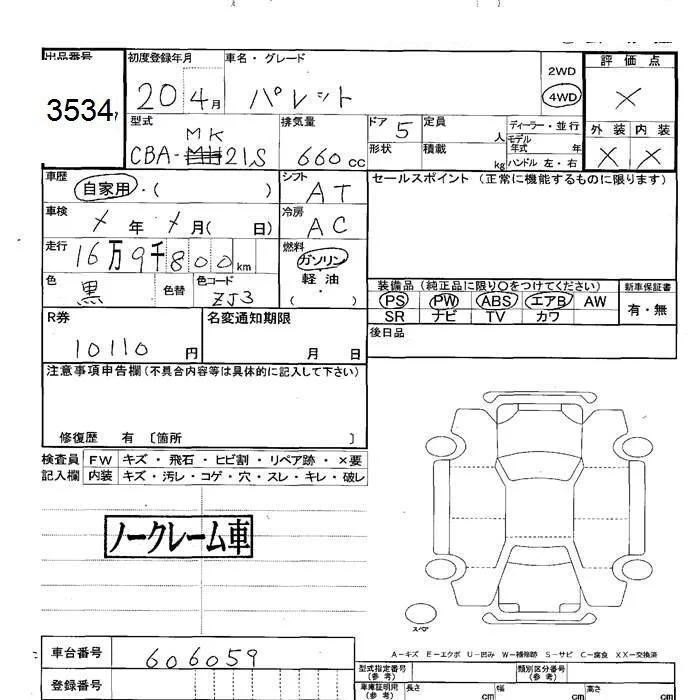 出品番号 初度登録年月 車名・グレード 評価点
3534 20 4月 パレット 2WD 4WD ×
型式 排気量 ドア 定員 ディーラー・並行 外装 内装
CBA-MK21S 660cc 5 人 モデル年式 年 × ×
形状 積載 kg ハンドル 左・右
車歴 シフト セールスポイント (正常に機能するものに限ります)
自家用・( ) AT
車検 冷房
× 年 × 月( 日) AC
走行 燃料
16万9千800km ガソリン
色 色替 色コード 軽油
黒 ZJ3 ( )
装備品(純正品に限り○をつけてください) 新車保証書
PS PW ABS エアB AW 有・無
SR ナビ TV カワ
R券 名変通知期限 後日品
10110円 月 日
注意事項申告欄(不具合内容等は具体的に記入して下さい)
修復歴 有 〔箇所 〕
検査員 FW キズ・飛石・ヒビ割・リペア跡・×要
記入欄 内装 キズ・汚レ・コゲ・穴・スレ・キレ・破レ
ノークレーム車
スペア
A-キズ E-エクボ U-凹み W-補修跡 S-サビ C-腐食 XX-交換済
車台番号 606059
型式指定番号(参考) 類別区分番号(参考)
登録番号
車庫証明用(参考) 長さ cm 幅 cm 高さ cm